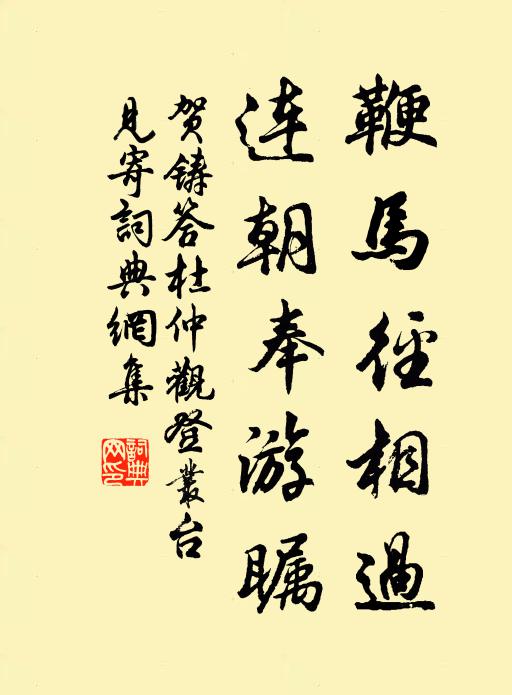 鞭馬徑相過
連朝奉游瞩
贺鑄答杜仲觀登叢台
見寄詞典網集
詞典
网印